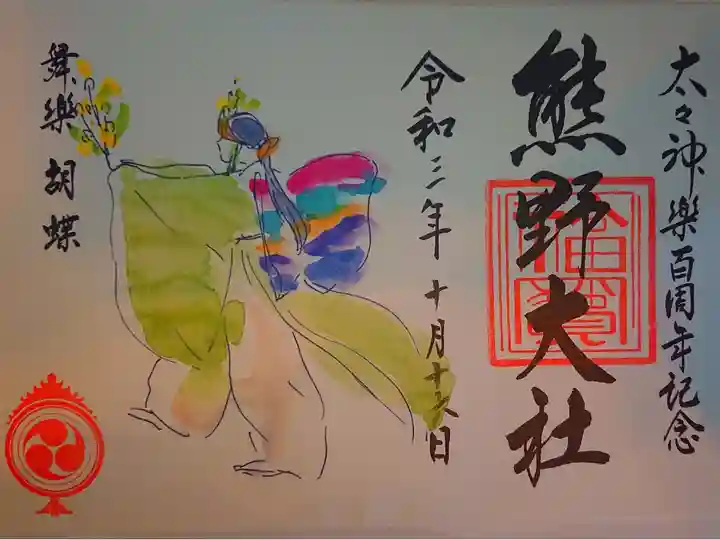 太々神樂百周年記念
熊野大社
令和三年十月十六日
舞樂 胡蝶